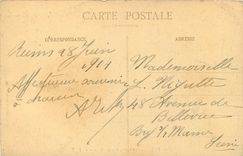 CARTE POSTALE
CORRESPONDANCE
ADRESSE
Reims 28 Juin
1911
Affectueux souvenir
Mademoiselle
48 Avenue de
Bellevue
Bry s/ Marne
Seine